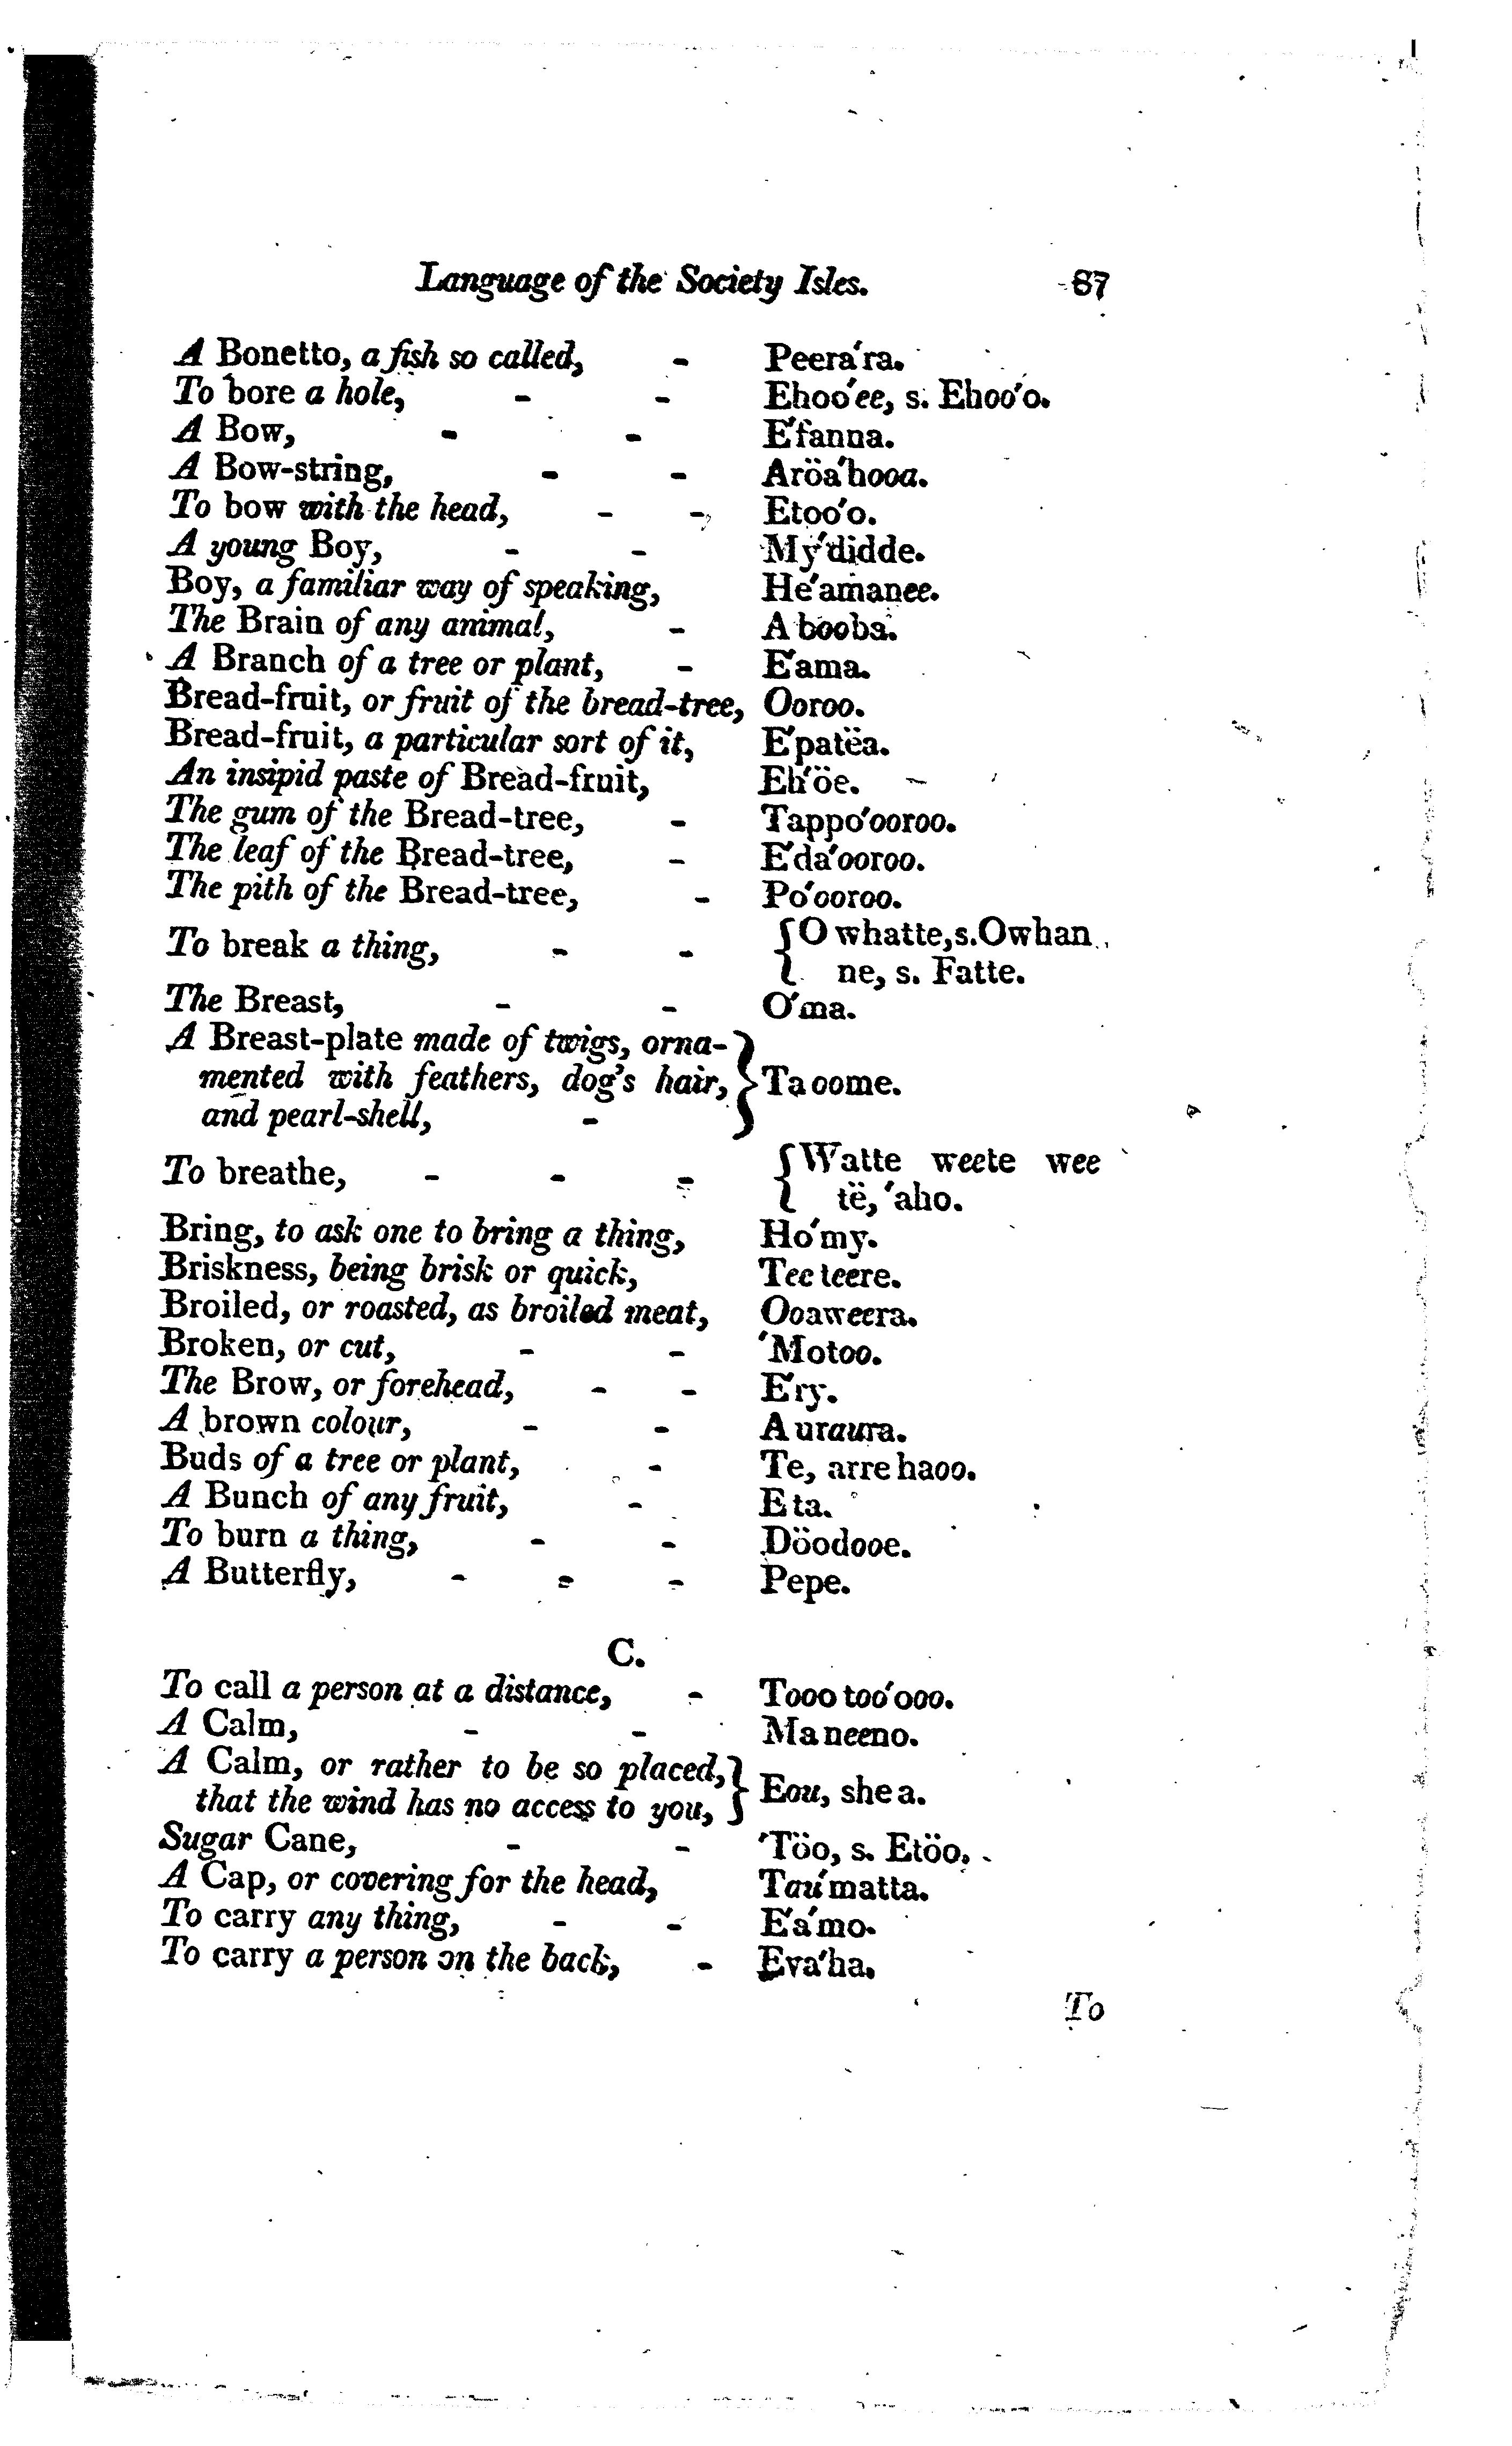 Language of the Society Isles. 87
A Bonetto, a fish so called, - Peera´ra.
To bore a hole, - - Ehoo´ee, s. Ehoo´o.
A Bow, - - E´fanna.
A Bow-string, - - Aröa´hooa.
To bow with the head, - - Etoo´o.
A young Boy, - - My´didde.
Boy, a familiar way of speaking, He´amanee.
The Brain of any animal, - A booba.
A Branch of a tree or plant, - E´ama.
Bread-fruit, or fruit of the bread-tree, Ooroo.
Bread-fruit, a particular sort of it, E´patëa.
An insipid paste of Bread-fruit, Eh´öe.
The gum of the Bread-tree, - Tappo´ooroo.
The leaf of the Bread-tree, - E´da´ooroo.
The pith of the Bread-tree, - Po´ooroo.
To break a thing, - - { O whatte, s. Owhan
ne, s. Fatte.
The Breast, - - O´ma.
A Breast-plate made of twigs, orna-
mented with feathers, dog's hair, } Ta oome.
and pearl-shell, -
To breathe, - - - { Watte weete wee
të, ´aho.
Bring, to ask one to bring a thing, Ho´my.
Briskness, being brisk or quick, Tee teere.
Broiled, or roasted, as broiled meat, Ooaweera.
Broken, or cut, - - ´Motoo.
The Brow, or forehead, - - E´ry.
A brown colour, - - A uraura.
Buds of a tree or plant, - Te, arre haoo.
A Bunch of any fruit, - E ta.
To burn a thing, - - Döodooe.
A Butterfly, - - - Pepe.
C.
To call a person at a distance, - Tooo too´ooo.
A Calm, - - Ma neeno.
A Calm, or rather to be so placed,
that the wind has no access to you, } Eou, shea.
Sugar Cane, - - ´Töo, s. Etöo.
A Cap, or covering for the head, Tau´matta.
To carry any thing, - - E´a´mo.
To carry a person on the back, - Eva´ha.
To